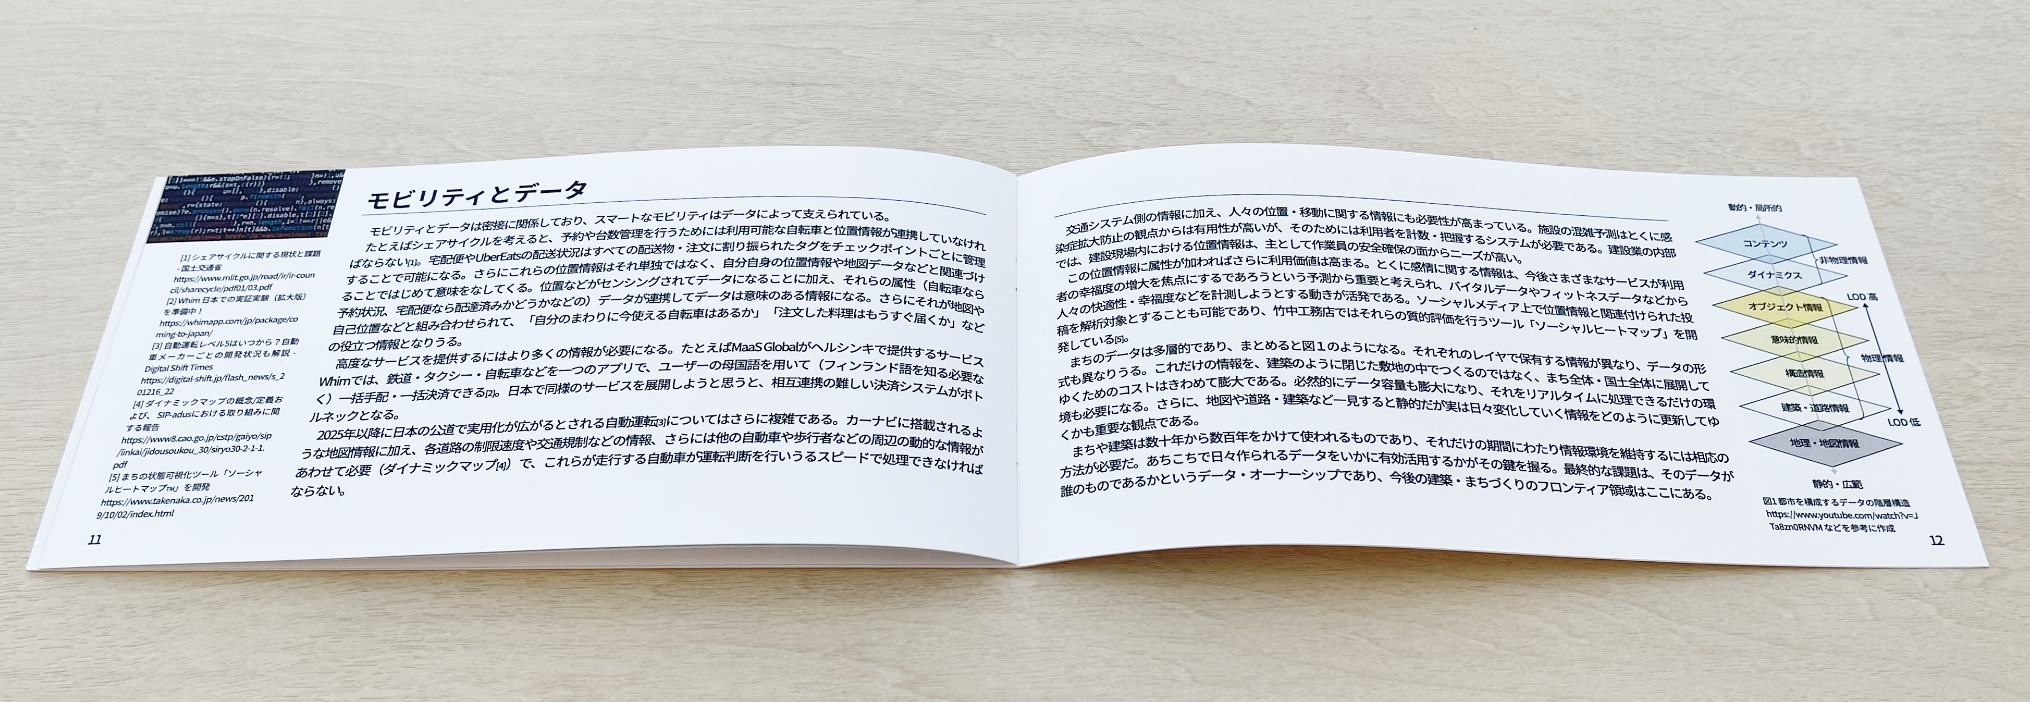 モビリティとデータ
モビリティとデータは密接に関係しており、スマートなモビリティはデータによって支えられている。
たとえばシェアサイクルを考えると、予約や台数管理を行うためには利用可能な自転車と位置情報が連携していなけれ
ばならない[1]。宅配便やUberEatsの配送状況はすべての配送物・注文に割り振られたタグをチェックポイントごとに管理
することで可能になる。さらにこれらの位置情報はそれ単独ではなく、自分自身の位置情報や地図データなどと関連づけ
ることではじめて意味をなしてくる。位置などがセンシングされてデータになることに加え、それらの属性（自転車なら
予約状況、宅配便なら配達済みかどうかなどの）データが連携してデータは意味のある情報になる。さらにそれが地図や
自己位置などと組み合わせられて、「自分のまわりに今使える自転車はあるか」「注文した料理はもうすぐ届くか」など
の役立つ情報となりうる。
高度なサービスを提供するにはより多くの情報が必要になる。たとえばMaaS Globalがヘルシンキで提供するサービス
Whimでは、鉄道・タクシー・自転車などを一つのアプリで、ユーザーの母国語を用いて（フィンランド語を知る必要な
く）一括手配・一括決済できる[2]。日本で同様のサービスを展開しようと思うと、相互連携の難しい決済システムがボト
ルネックとなる。
2025年以降に日本の公道で実用化が広がるとされる自動運転[3]についてはさらに複雑である。カーナビに搭載されるよ
うな地図情報に加え、各道路の制限速度や交通規制などの情報、さらには他の自動車や歩行者などの周辺の動的な情報が
あわせて必要（ダイナミックマップ[4]）で、これらが走行する自動車が運転判断を行いうるスピードで処理できなければ
ならない。
[1] シェアサイクルに関する現状と課題
- 国土交通省
https://www.mlit.go.jp/road/ir/ir-coun
cil/sharecycle/pdf01/03.pdf
[2] Whim 日本での実証実験（拡大版）
を準備中！
https://whimapp.com/jp/package/co
ming-to-japan/
[3] 自動運転レベル5はいつから？自動
車メーカーごとの開発状況も解説 -
Digital Shift Times
https://digital-shift.jp/flash_news/s_2
01216_22
[4] ダイナミックマップの概念/定義お
よび、SIP-adusにおける取り組みに関
する報告
https://www8.cao.go.jp/cstp/gaiyo/sip
/iinkai/jidousoukou_30/siryo30-2-1-1.
pdf
[5] まちの状態可視化ツール「ソーシャ
ルヒートマップ™」を開発
https://www.takenaka.co.jp/news/201
9/10/02/index.html
11
交通システム側の情報に加え、人々の位置・移動に関する情報にも必要性が高まっている。施設の混雑予測はとくに感
染症拡大防止の観点からは有用性が高いが、そのためには利用者を計数・把握するシステムが必要である。建設業の内部
では、建設現場内における位置情報は、主として作業員の安全確保の面からニーズが高い。
この位置情報に属性が加わればさらに利用価値は高まる。とくに感情に関する情報は、今後さまざまなサービスが利用
者の幸福度の増大を焦点にするであろうという予測から重要と考えられ、バイタルデータやフィットネスデータなどから
人々の快適性・幸福度などを計測しようとする動きが活発である。ソーシャルメディア上で位置情報と関連付けられた投
稿を解析対象とすることも可能であり、竹中工務店ではそれらの質的評価を行うツール「ソーシャルヒートマップ」を開
発している[5]。
まちのデータは多層的であり、まとめると図１のようになる。それぞれのレイヤで保有する情報が異なり、データの形
式も異なりうる。これだけの情報を、建築のように閉じた敷地の中でつくるのではなく、まち全体・国土全体に展開して
ゆくためのコストはきわめて膨大である。必然的にデータ容量も膨大になり、それをリアルタイムに処理できるだけの環
境も必要になる。さらに、地図や道路・建築など一見すると静的だが実は日々変化していく情報をどのように更新してゆ
くかも重要な観点である。
まちや建築は数十年から数百年をかけて使われるものであり、それだけの期間にわたり情報環境を維持するには相応の
方法が必要だ。あちこちで日々作られるデータをいかに有効活用するかがその鍵を握る。最終的な課題は、そのデータが
誰のものであるかというデータ・オーナーシップであり、今後の建築・まちづくりのフロンティア領域はここにある。
動的・局所的
コンテンツ
非物理情報
ダイナミクス
LOD 高
オブジェクト情報
意味的情報
物理情報
構造情報
建築・道路情報
LOD 低
地理・地図情報
静的・広範
図1 都市を構成するデータの階層構造
https://www.youtube.com/watch?v=J
Ta8zn0RNVM などを参考に作成
12